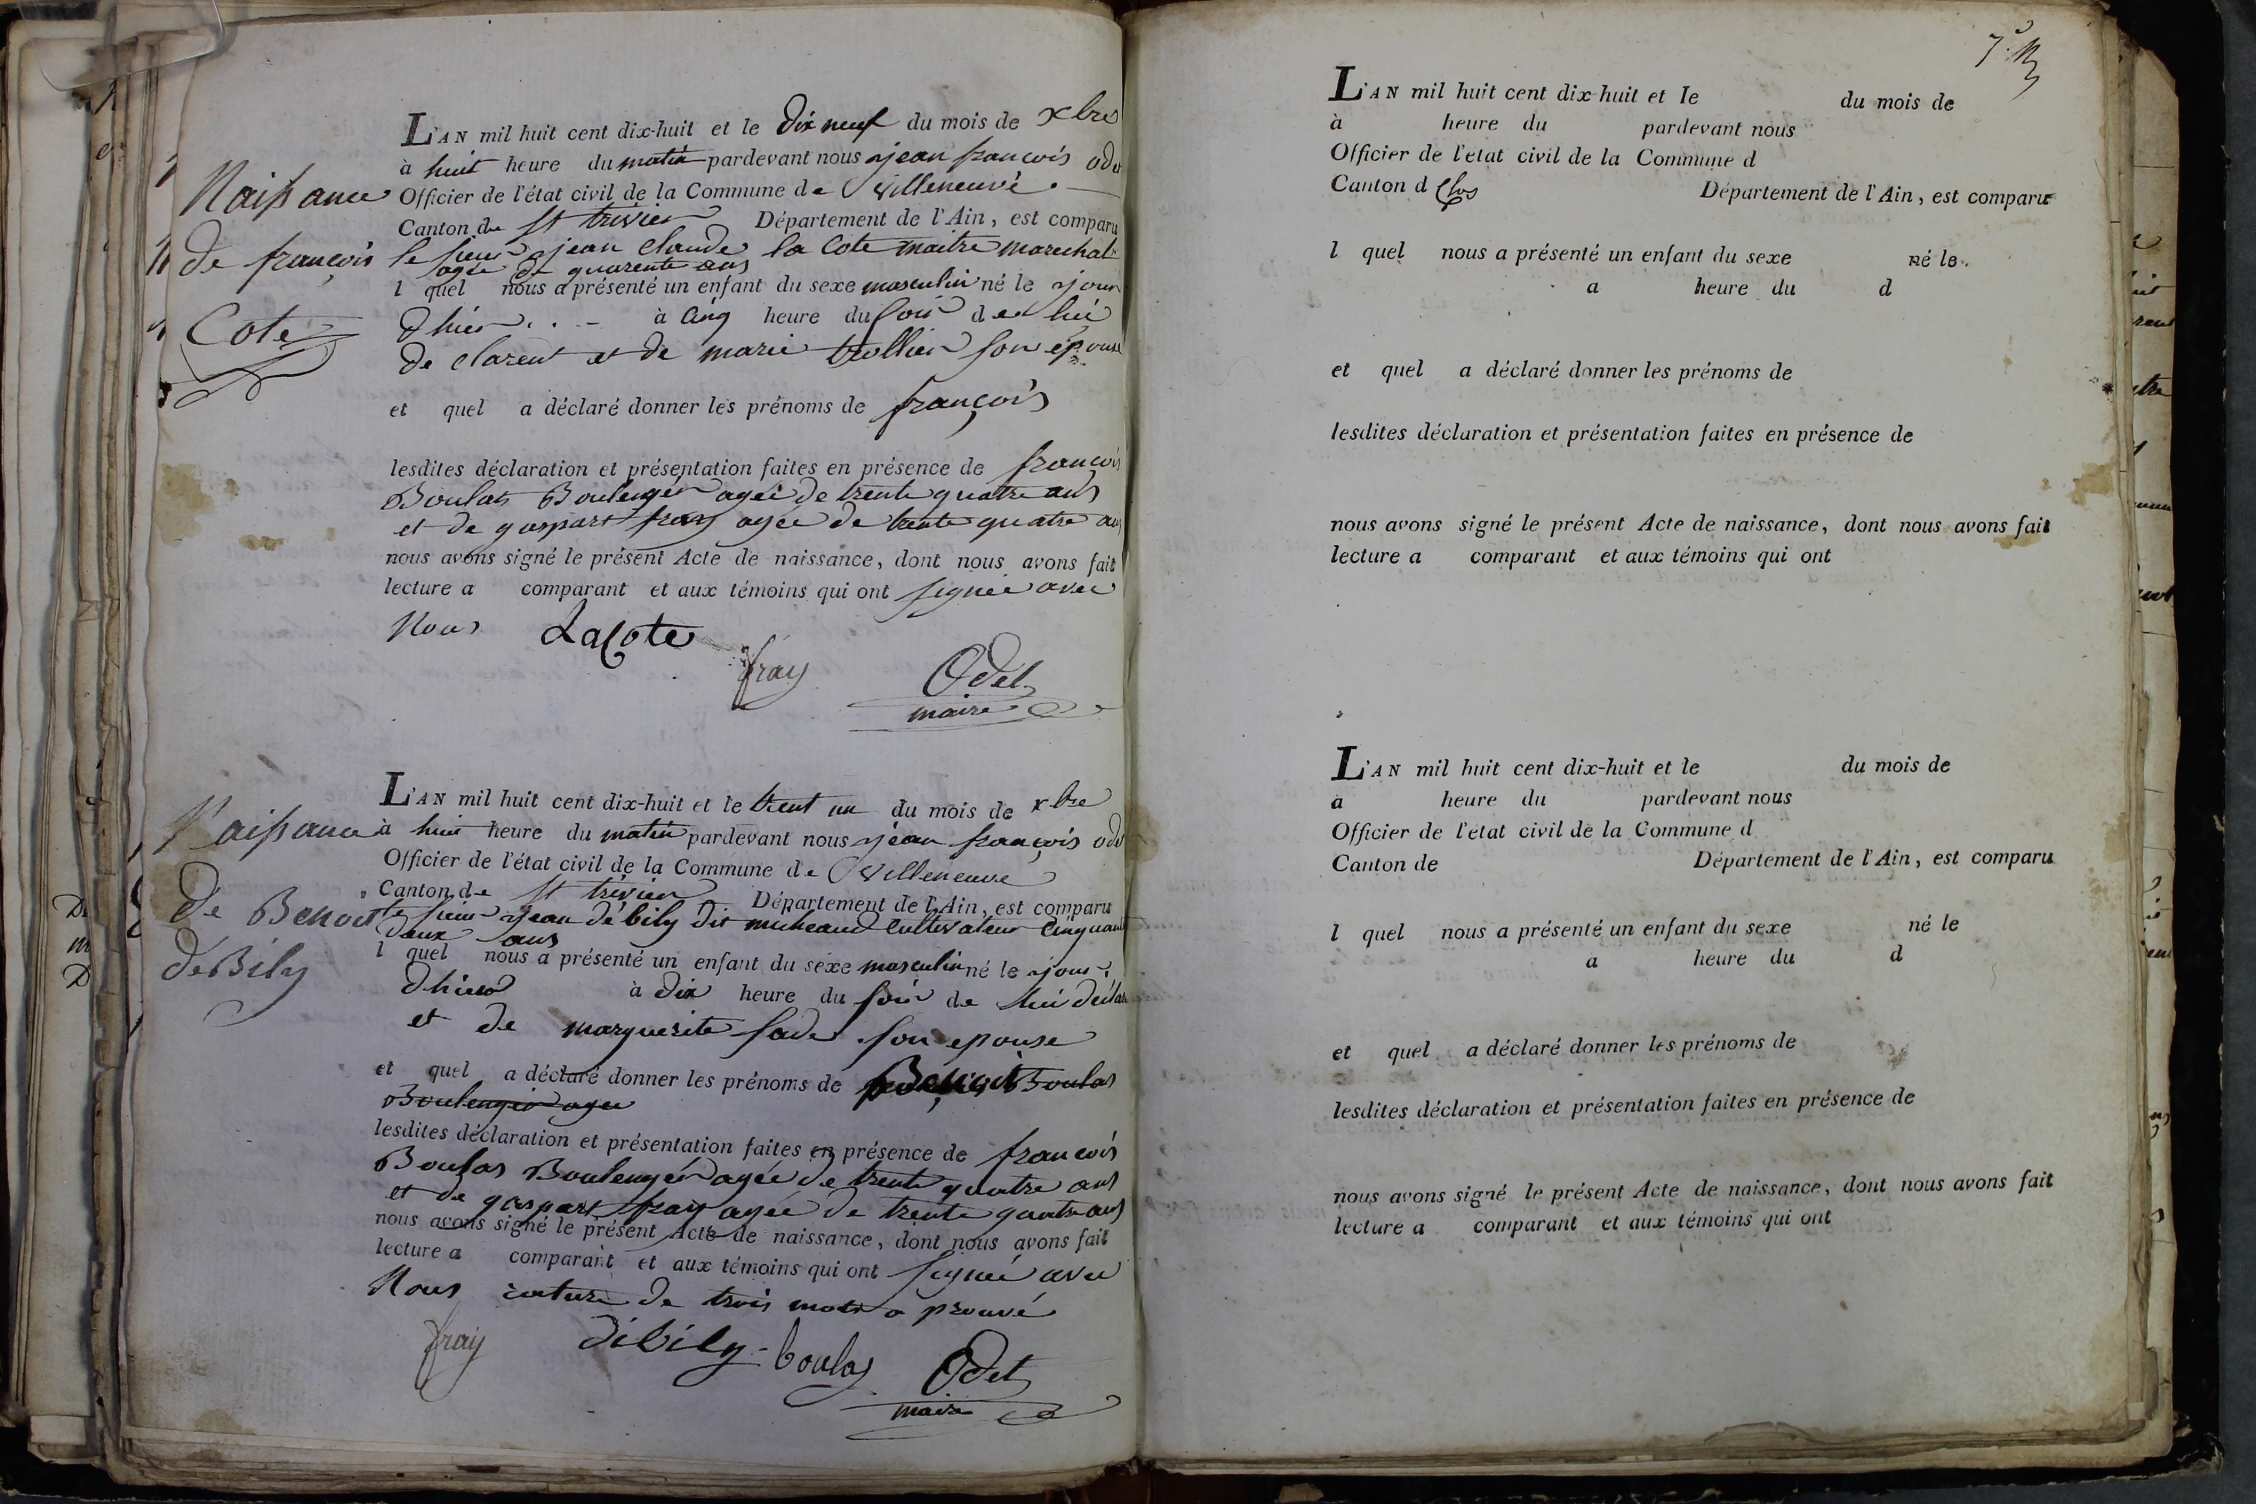 Naissance
de françois
Cote
L'AN mil huit cent dix-huit et le dix neuf du mois de xbre
à huit heure du matin pardevant nous jean françois odet
Officier de l'état civil de la Commune de villeneuve
Canton de St trivier Département de l'Ain, est comparu
le sieur jean claude la Cote maitre marechal
agée de quarente ans
l quel nous a présenté un enfant du sexe masculin né le jour
dhier à cinq heure du soir de lui
de clarent et de marie trollier son épouse
et quel a déclaré donner les prénoms de françois
lesdites déclaration et présentation faites en présence de françois
Boulas Boulengér agée de trente quatre ans
et de gaspart fray agée de trente quatre ans
nous avons signé le présent Acte de naissance, dont nous avons fait
lecture a comparant et aux témoins qui ont signée avec
Nous Lacote
fray Odet
maire
Naissance
de Benoit
déBily
L'AN mil huit cent dix-huit et le trent un du mois de xbre
à huit heure du matin pardevant nous jean françois odet
Officier de l'état civil de la Commune de villeneuve
Canton de St trivier Département de l'Ain, est comparu
le sieur jean débily dit micheaud Cultivateur Cinquante
deux ans
l quel nous a présenté un enfant du sexe masculin né le jour
dhier à dix heure du soir de lui déclar
et de marguerite fade son epouse
et quel a déclaré donner les prénoms de Benoit Boulas
Boulengér agee
lesdites déclaration et présentation faites en présence de françois
Boulas Boulengér agée de trente quatre ans
et de gaspart fray agée de trente quatre ans
nous avons signé le présent Acte de naissance, dont nous avons fait
lecture a comparant et aux témoins qui ont signée avec
Nous rature de trois mots a prouvé
fray débily boulas Odet
maire
7e
L'AN mil huit cent dix-huit et le du mois de
à heure du pardevant nous
Officier de l'etat civil de la Commune d
Canton d Clos Département de l'Ain, est comparu
l quel nous a présenté un enfant du sexe né le
a heure du d
et quel a déclaré donner les prénoms de
lesdites déclaration et présentation faites en présence de
nous avons signé le présent Acte de naissance, dont nous avons fait
lecture a comparant et aux témoins qui ont
L'AN mil huit cent dix-huit et le du mois de
a heure du pardevant nous
Officier de l'etat civil de la Commune d
Canton de Département de l'Ain, est comparu
l quel nous a présenté un enfant du sexe né le
a heure du d
et quel a déclaré donner les prénoms de
lesdites déclaration et présentation faites en présence de
nous avons signé le présent Acte de naissance, dont nous avons fait
lecture a comparant et aux témoins qui ont